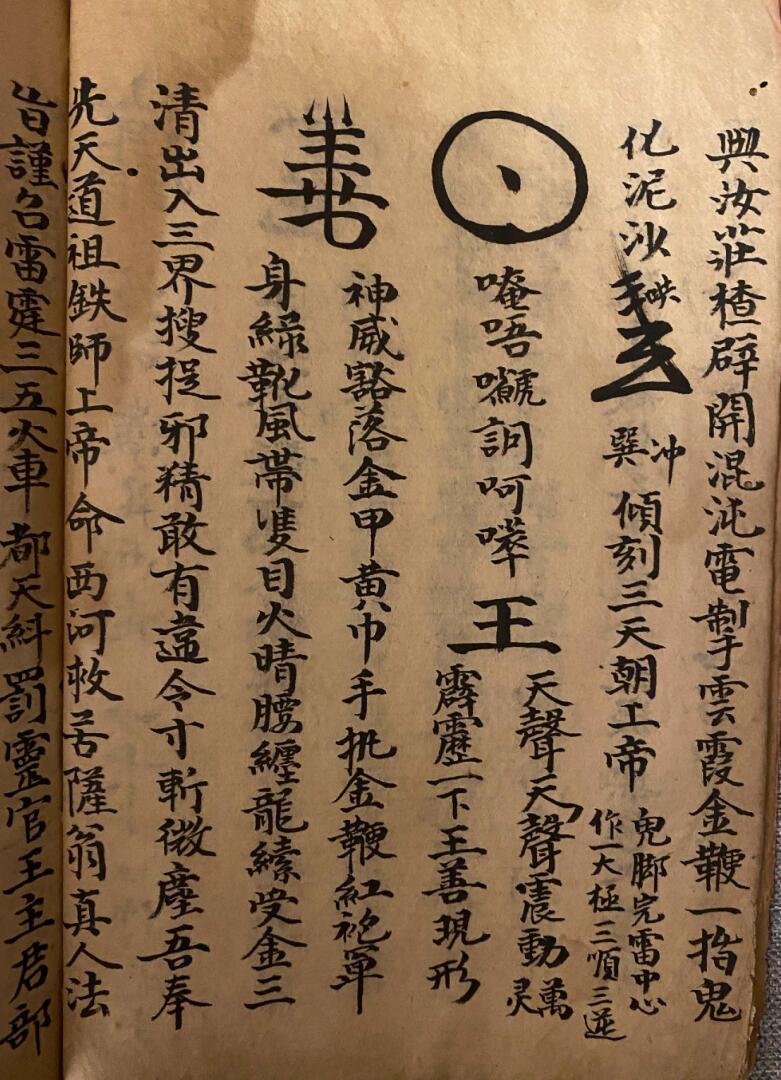 與汝莊楂辟開混沌電掣雲霞金鞭一指鬼
化泥沙
冲巽
傾刻三天朝上帝
鬼脚完雷中心
作一大極三順三逆
唵唔詞呵
王
天聲天聲震動萬灵
霹靂一下王善現形
神威豁落金甲黄巾手執金鞭紅袍罩
身綠靴風帶隻目火睛腰纏龍索受金三
清出入三界搜捉邪精敢有違令寸斬微塵吾奉
先天道祖鉄師上帝命西河救苦薩翁真人法
旨謹召雷霆三五火車都天糾罰靈官王主君部